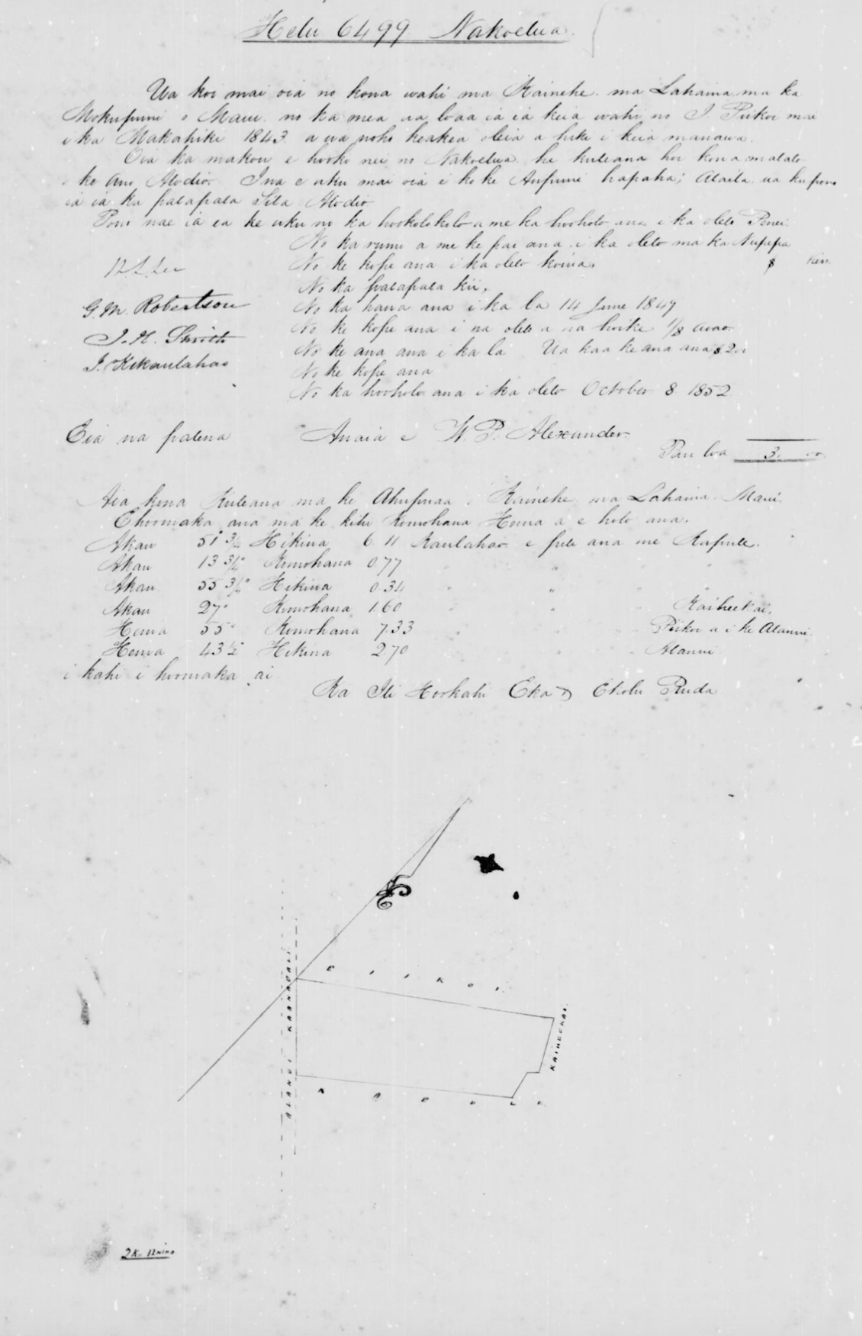 Helu 6499 Nakoelua
Ua koi mai oia no kona wahi ma Kainehe ma Lahaina ma ka
Mokupuni o Maui no ka mea ua loaa ia ia keia wahi no J Piikoi mai
i ka Makahiki 1843. a ua noho keakea oleia a hiki i keia manawa.
Oia ka makou e hooko nei no Nakoelua, he kuleana hoi kona malalo
o ke Ano Alodio. Ina e uku mai oia i ko ke Aupuni hapaha; Alaila ua ku pono
ia ia ka palapala Sila Alodio
Penei nae ia ia ke uku no ka hookolokolo a me ka hooholo ana i ka olelo Penei
No ka rumi a me ke pai ana i ka olelo ma ka Nupepa
No ke kope ana i ka olelo koina. 8
W L Lee
No ka palapala kii.
G. M. Robertson
No ka hana ana i ka la 14 June 1849
J. H. Smith
No ke kope ana i na olelo a na hoike 1/8
No ke ana ana i ka la Ua kaa ke ana ana $2.
J. Kekaulahao
No ke kope ana
No ka hooholo ana i ka olelo October 8 1852
Eia na palena Anaia e W. P. Alexander.
Pau loa 3.
Aia keia Kuleana ma ke Ahupuaa o Kainehe ma Lahaina Maui.
E hoomaka ana ma ke kihi Komohana Hema a e holo ana.
Akau 51 3/4° Hikina 6 11 Kaulahao e pili ana me Kapule.
Akau 13 3/4° Komohana 0.77 " "
Akau 55 3/4° Hikina 0.34 " "
Akau 27° Komohana 1.60 " " Kaiheekai.
Hema 55° Komohana 7.33 " " Piikoi a i ke Alanui
Hema 43½ Hikina 2.70 " " Alanui
i kahi i hoomaka ai
Ka Ili Hookahi Eka & Ekolu Ruda
PIIKOI
ALANUI KAANAPALI
KAIHEEKAI
2 K.